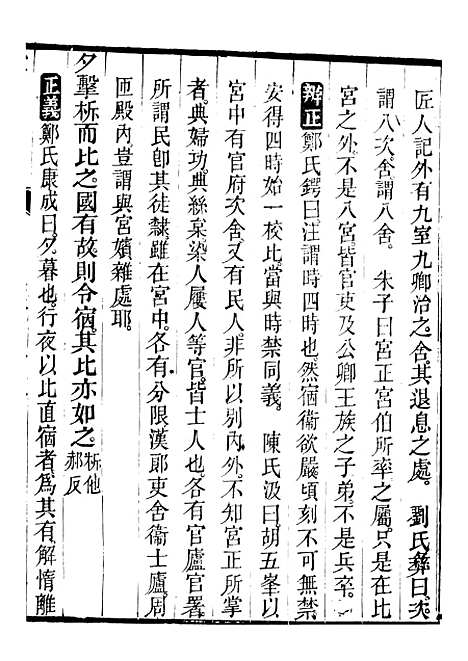 匠人記外有九室九卿治之舍其退息之處。　劉氏彝曰次
謂八次舍謂八舍。　朱子曰宮正宮伯所率之屬只是在比
宮之外不是八宮皆宮吏及公卿王族之子弟不是兵卒。
辨正鄭氏鍔曰注謂時四時也然宿衞欲嚴頃刻不可無禁
安得四時始一校比當與時禁同義。　陳氏汲曰胡五峯以
宮中有官府次舍又有民人非所以别內外不知宮正所掌
者典婦功典絲枲染人屨人等官皆士人也各有官廬官署
所謂民卽其徒隸雖在宮中各有分限漢郞吏舍衞士廬周
匝殿內豈謂與宮嬪雜處耶。
夕擊柝而比之國有故則令宿其比亦如之。柝他郝反
正義鄭氏康成曰夕暮也行夜以比直宿者爲其有解惰離